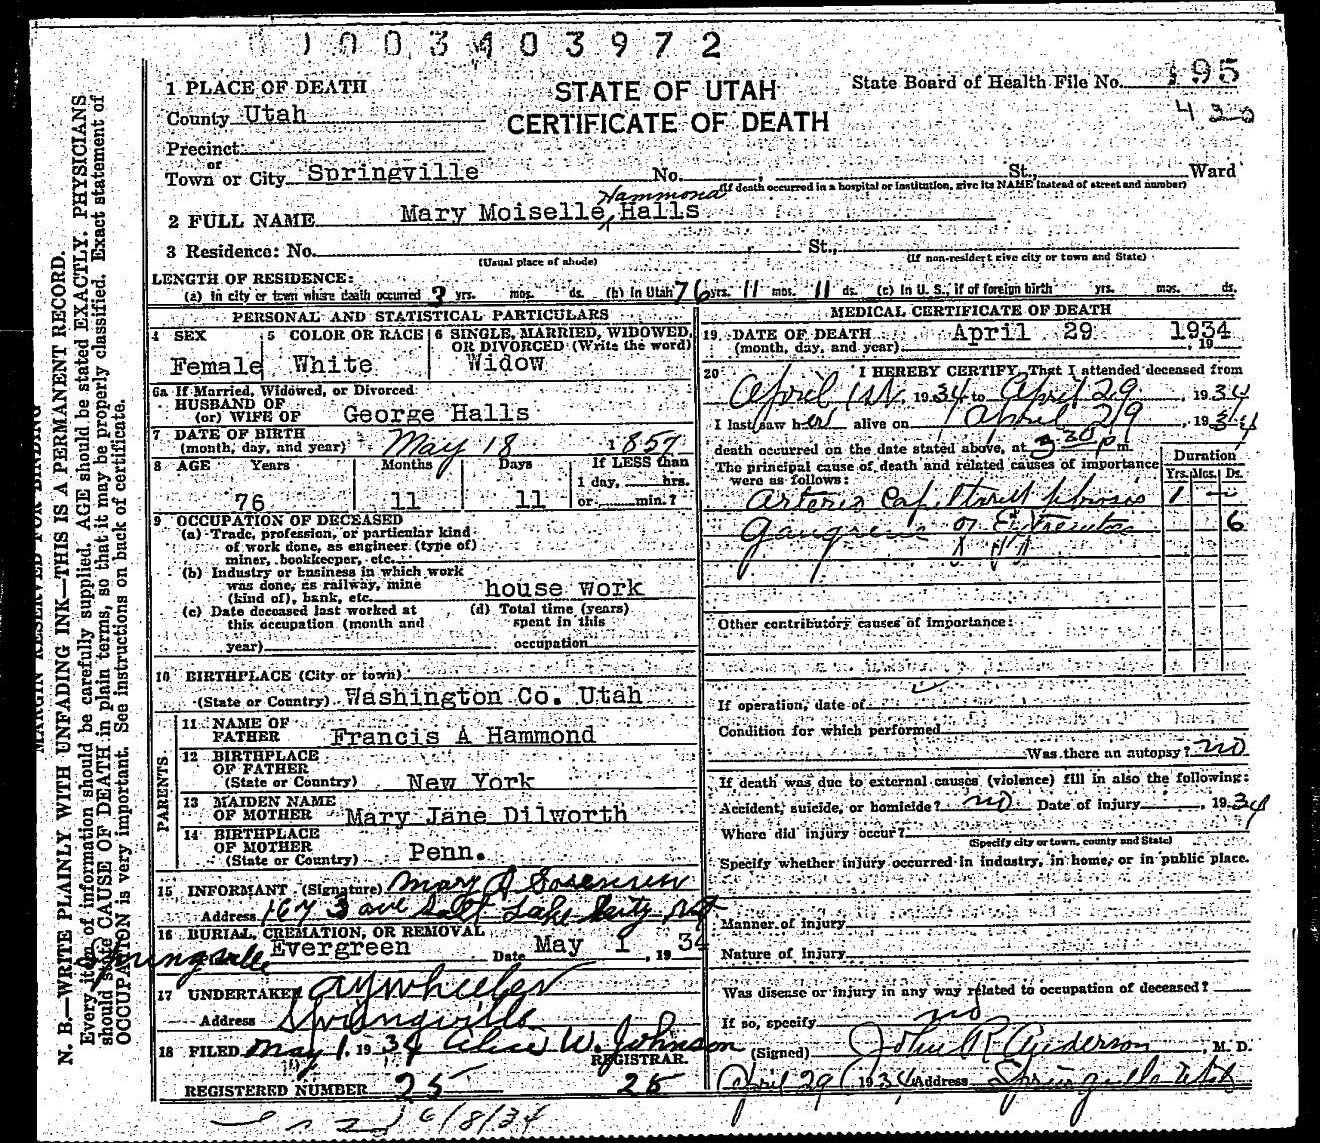 1003403972
1 PLACE OF DEATH
STATE OF UTAH
State Board of Health File No. 95
County Utah
CERTIFICATE OF DEATH
430
Precinct
or
Town or City Springville No. , St., Ward
(If death occurred in a hospital or institution, give its NAME instead of street and number)
Hammond
2 FULL NAME Mary Moiselle Halls
3 Residence: No. , St.,
(Usual place of abode) (If non-resident give city or town and State)
LENGTH OF RESIDENCE:
(a) In city or town where death occurred 3 yrs. mos. ds. (b) In Utah 76 yrs. 11 mos. 11 ds. (c) In U. S., if of foreign birth yrs. mos. ds.
PERSONAL AND STATISTICAL PARTICULARS
4 SEX
Female
5 COLOR OR RACE
White
6 SINGLE, MARRIED, WIDOWED, OR DIVORCED (Write the word)
Widow
6a If Married, Widowed, or Divorced
HUSBAND OF
(or) WIFE OF George Halls
7 DATE OF BIRTH
(month, day, and year) May 18 1857
8 AGE Years Months Days If LESS than
1 day, hrs.
76 11 11 or min.?
9 OCCUPATION OF DECEASED
(a) Trade, profession, or particular kind
of work done, as engineer (type of)
miner, bookkeeper, etc.
(b) Industry or business in which work
was done, as railway, mine
(kind of), bank, etc. house work
(c) Date deceased last worked at
this occupation (month and
year)
(d) Total time (years)
spent in this
occupation
10 BIRTHPLACE (City or town)
(State or Country) Washington Co. Utah
PARENTS
11 NAME OF
FATHER Francis A Hammond
12 BIRTHPLACE
OF FATHER
(State or Country) New York
13 MAIDEN NAME
OF MOTHER Mary Jane Dilworth
14 BIRTHPLACE
OF MOTHER
(State or Country) Penn.
15 INFORMANT (Signature) Mary Sorensen
Address 167 3 ave Salt Lake City
16 BURIAL, CREMATION, OR REMOVAL
Springville Evergreen Date May 1, 1934
17 UNDERTAKER A Y Wheeler
Address Springville
18 FILED May 1, 1934 Alice W. Johnson
REGISTRAR.
REGISTERED NUMBER 25 25
6/8/34
MEDICAL CERTIFICATE OF DEATH
19 DATE OF DEATH April 29 1934
(month, day, and year) , 19
20 I HEREBY CERTIFY, That I attended deceased from
April 1st, 1934 to April 29, 1934
I last saw her alive on April 29, 1934
death occurred on the date stated above, at 3 30 p m.
The principal cause of death and related causes of importance
were as follows:
Duration
Yrs. Mos. Ds.
Arterio 1
Gangrene of 6
Other contributory causes of importance:
If operation, date of
Condition for which performed
Was there an autopsy? no
If death was due to external causes (violence) fill in also the following:
Accident, suicide, or homicide? no Date of injury , 1934
Where did injury occur?
(Specify city or town, county and State)
Specify whether injury occurred in industry, in home, or in public place.
Manner of injury
Nature of injury
Was disease or injury in any way related to occupation of deceased?
If so, specify no
(Signed) John R Anderson, M. D.
April 29 1934 Address Springville Utah
MARGIN RESERVED FOR BINDING
N. B.—WRITE PLAINLY WITH UNFADING INK—THIS IS A PERMANENT RECORD.
Every item of information should be carefully supplied. AGE should be stated EXACTLY. PHYSICIANS
should state CAUSE OF DEATH in plain terms, so that it may be properly classified. Exact statement of
OCCUPATION is very important. See instructions on back of certificate.